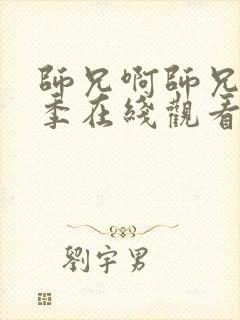 師兄啊師兄
季在綫觀看
劉宇男